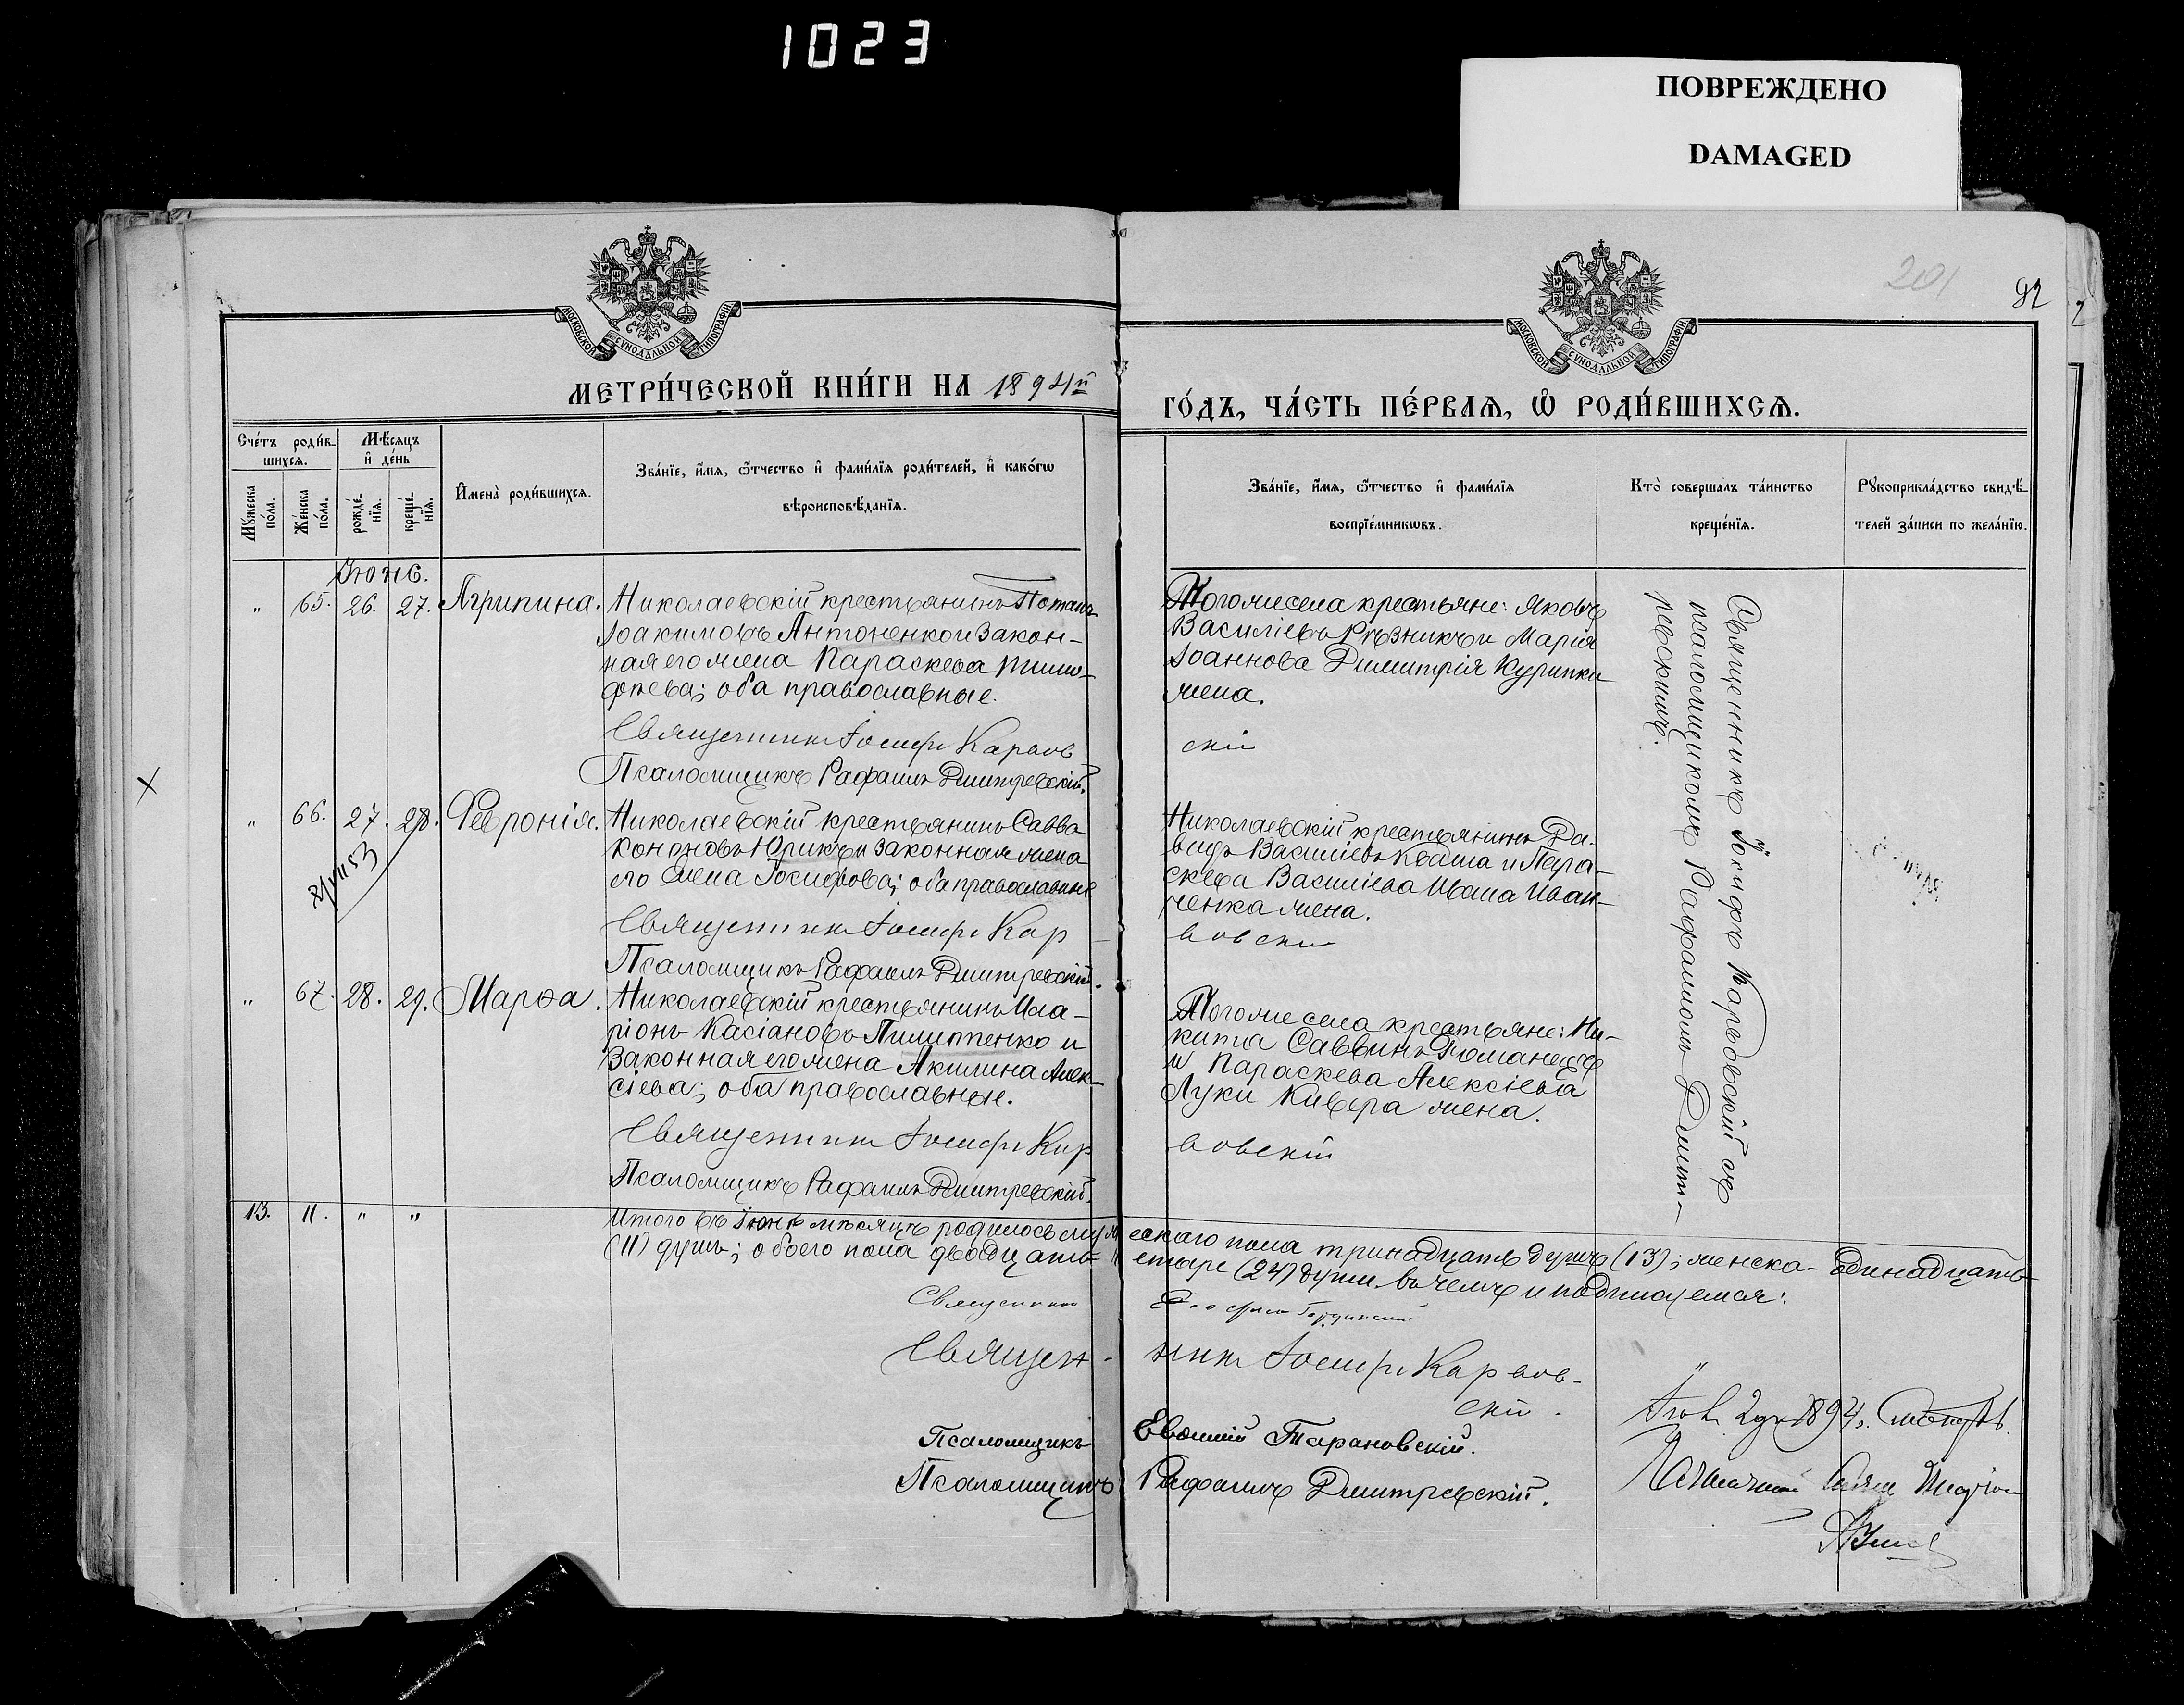 1023
ПОВРЕЖДЕНО
DAMAGED
201
92
МОСКОВСКОЙ СѴНОДАЛЬНОЙ ТИПОГРАФІИ
МОСКОВСКОЙ СѴНОДАЛЬНОЙ ТИПОГРАФІИ
МЕТРИ́ЧЕСКОЙ КНИ́ГИ НА 1894й
ГО́ДЪ, ЧА́СТЬ ПЕ́РВАѦ, Ѡ҆ РОДИ́ВШИХСѦ.
Сче́тъ роди́в-
шихсѧ.
Мꙋ́жеска по́ла.
Же́нска по́ла.
Мѣ́сѧцъ
и҆ де́нь
рожде́-нїѧ.
креще́-нїѧ.
И҆мена̀ роди́вшихсѧ.
Зва́нїе, и҆́мѧ, ѻ҆́тчество и҆ фами́лїѧ роди́телей, и҆ како́гѡ
вѣроисповѣ́данїѧ.
Зва́нїе, и҆́мѧ, ѻ҆́тчество и҆ фами́лїѧ
воспрїе́мникѡвъ.
Кто̀ соверша́лъ та́инство
креще́нїѧ.
Рꙋкоприкла́дство свидѣ́-
телей за́писи по жела́нїю.
Іюнь.
" 65. 26. 27. Агрипина. Николаевскій крестьянинъ Потапъ
Іоакимовъ Антоненко и закон-
ная его жена Параскева Тимо-
феева; оба православные.
Священникъ Іосифъ Карвов
скій
Псаломщикъ Рафаилъ Дмитревскій.
Того же села крестьяне: Яковъ
Василіевъ Рѣзникъ и Марія
Іоаннова Димитрія Курипки
жена.
Священникъ Іосифъ Карвовскій съ
псаломщикомъ Рафаиломъ Дмит-
ревскимъ.
" 66. 27. 28. Февронія. Николаевскій крестьянинъ Савва
Кононовъ Юрикъ и законная жена
его Елена Іосифова; оба православные
Священникъ Іосифъ Кар
вовскій
Псаломщикъ Рафаилъ Дмитревскій.
Николаевскій крестьянинъ Да-
видъ Василіевъ Кваша и Пара-
скева Василіева Иван-
ченка жена.
" 67. 28. 29. Марѳа. Николаевскій крестьянинъ Ила-
ріонъ Касіановъ Пилипенко и
законная его жена Акилина Алек-
сіева; оба православные.
Священникъ Іосифъ Кар
вовскій
Псаломщикъ Рафаилъ Дмитревскій.
Того же села крестьяне: Ни-
кита Саввинъ Романецъ
и Параскева Алексіева
Луки Кивера жена.
13. 11. " " Итого въ Іюнѣ мѣсяцѣ родилось мужескаго пола тринадцать душъ (13); женска- одинадцать
(11) душъ; обоего пола двадцать четыре (24) души. въ чемъ и подписуемся:
Священникъ
Священ- никъ Іосифъ Карвов-
скій.
Псаломщикъ Евѳимій Тарановскій.
Псаломщикъ Рафаилъ Дмитревскій.
1894